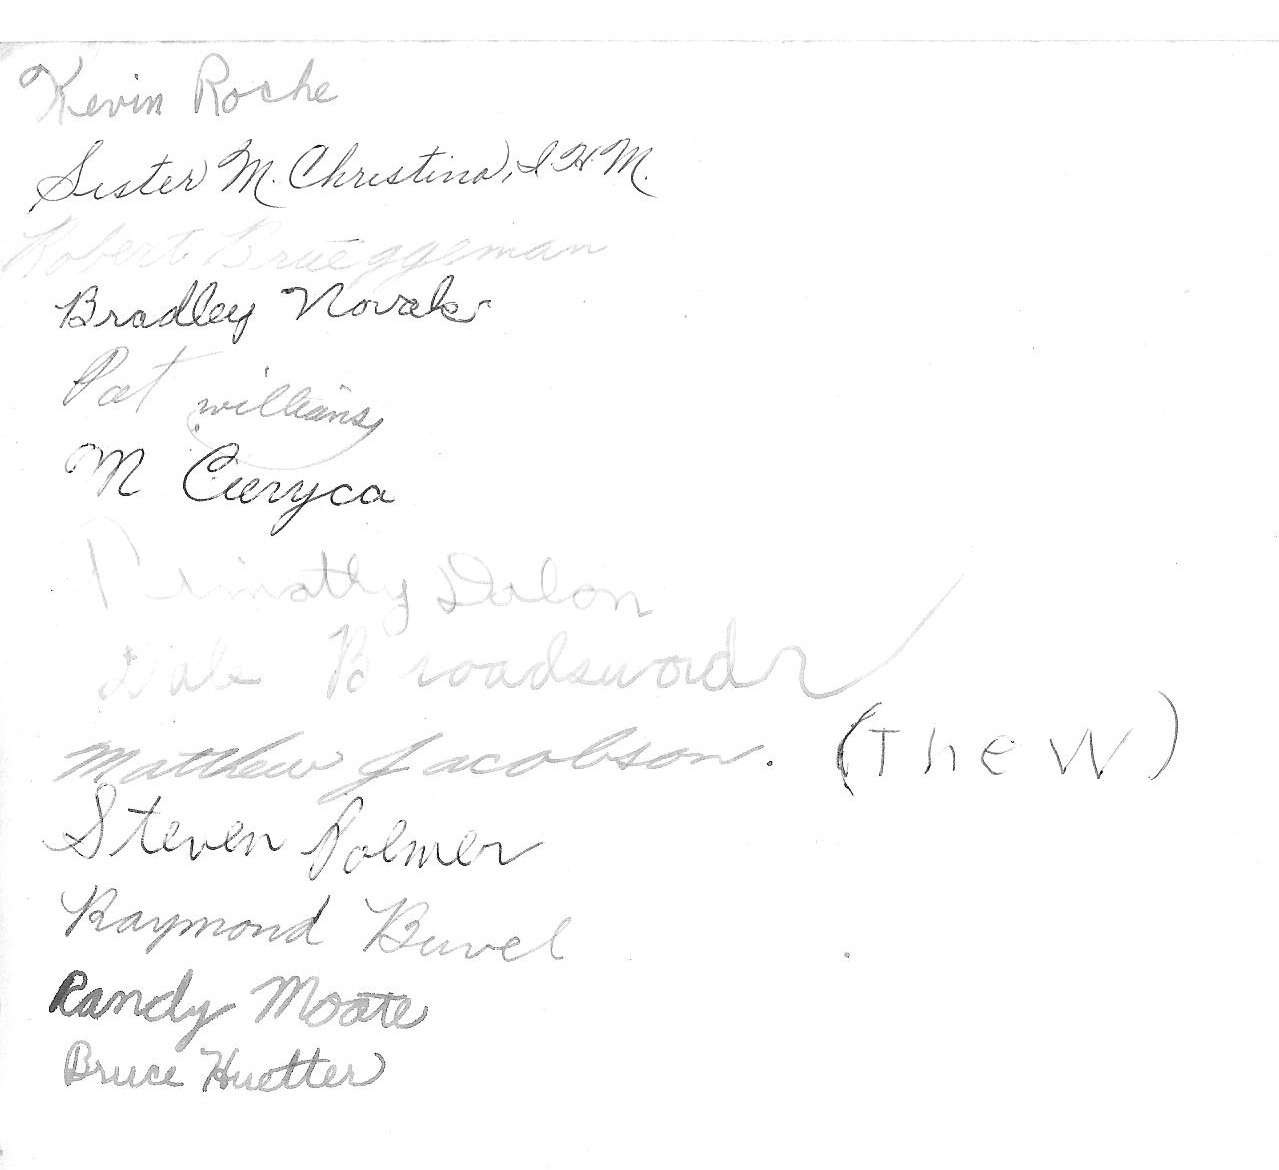 Kevin Roche
Sister M. Christina, I.H.M.
Robert Brueggeman
Bradley Novak
Pat williams
M Curyca
Timothy Dolon
Dale Broadsword
Matthew Jacobson. (The W)
Steven Polmer
Raymond Buvel
Randy Moate
Bruce Huetter